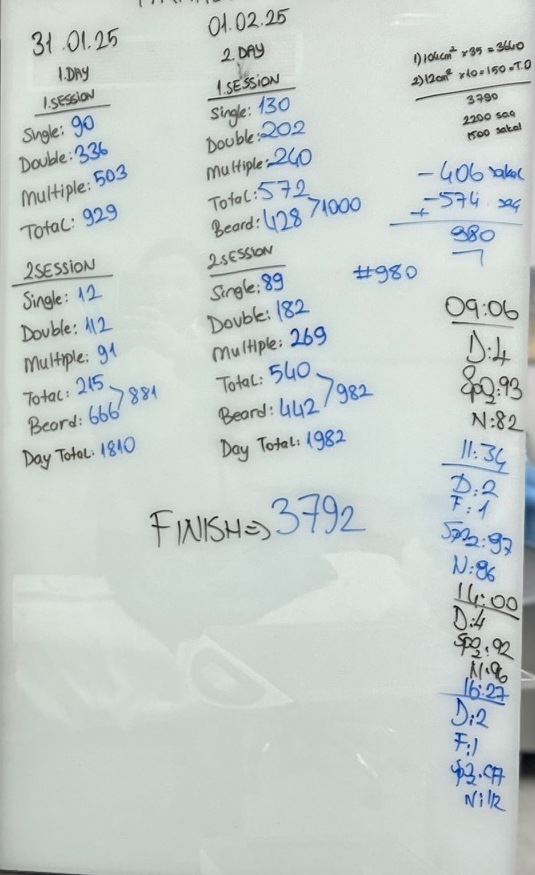 31.01.25
1.DAY
1.SESSION
Single: 90
Double: 336
Multiple: 503
Total: 929
2.SESSION
Single: 12
Double: 112
Multiple: 91
Total: 215
Beard: 666 > 881
Day Total: 1810
01.02.25
2.DAY
1.SESSION
Single: 130
Double: 202
Multiple: 240
Total: 572
Beard: 428 > 1000
2.SESSION
Single: 89
Double: 182
Multiple: 269
Total: 540
Beard: 442 > 982
Day Total: 1982
FINISH => 3792
1) 104cm² x 35 = 3640
2) 12cm² x 10 = 150 = T.O
3790
2200 saç
1500 sakal
- 406 sakal
+ - 574 saç
980
#980
09:06
D:4
SpO2:93
N:82
11:34
D:2
F:1
SpO2:97
N:86
14:00
D:4
SpO2:92
N:96
16:27
D:2
F:1
N:112